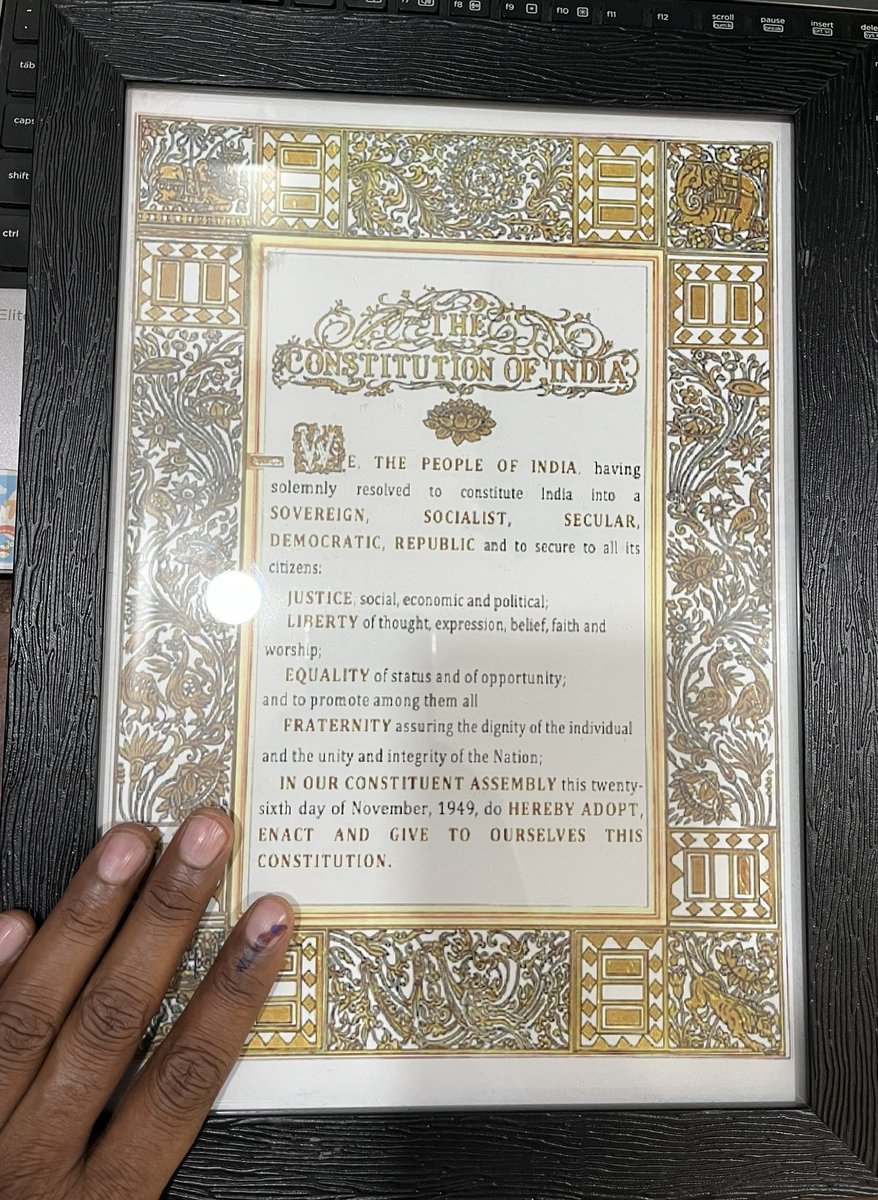 f8
f9
f10
f11
f12
scroll
pause
break
insert
tab
caps
shift
ctrl
Elite
THE
CONSTITUTION OF INDIA
WE, THE PEOPLE OF INDIA, having
solemnly resolved to constitute India into a
SOVEREIGN, SOCIALIST, SECULAR,
DEMOCRATIC, REPUBLIC and to secure to all its
citizens:
JUSTICE, social, economic and political;
LIBERTY of thought, expression, belief, faith and
worship;
EQUALITY of status and of opportunity;
and to promote among them all
FRATERNITY assuring the dignity of the individual
and the unity and integrity of the Nation;
IN OUR CONSTITUENT ASSEMBLY this twenty-
sixth day of November, 1949, do HEREBY ADOPT,
ENACT AND GIVE TO OURSELVES THIS
CONSTITUTION.